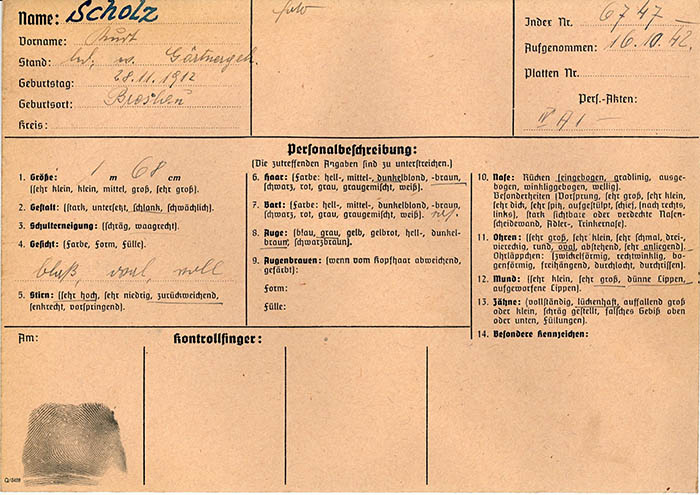 Name: Scholz
Vorname: Kurt
Stand: led. Gärtnergeh.
Geburtstag: 28.11.1912
Geburtsort: Breslau
Kreis:
Index Nr. 6747 –
Aufgenommen: 16.10.42.
Platten Nr.
Pers.-Akten:
Personalbeschreibung:
(Die zutreffenden Angaben sind zu unterstreichen.)
1. Größe: 1 m 68 cm
(sehr klein, klein, mittel, groß, sehr groß).
2. Gestalt: (stark, untersetzt, schlank, schwächlich).
3. Schulterneigung: (schräg, waagrecht).
4. Gesicht: (Farbe, Form, Fülle).
blaß, oval, voll
5. Stirn: (sehr hoch, sehr niedrig, zurückweichend,
senkrecht, vorspringend).
6. Haar: (Farbe: hell-, mittel-, dunkelblond, -braun,
schwarz, rot, grau, graugemischt, weiß).
7. Bart: (Farbe: hell-, mittel-, dunkelblond, -braun,
schwarz, rot, grau, graugemischt, weiß).
8. Auge: (blau, grau, gelb, gelbrot, hell-, dunkel-
braun, schwarzbraun).
9. Augenbrauen: (wenn vom Kopfhaar abweichend,
gefärbt):
Form:
Fülle:
10. Nase: Rücken (eingebogen, gradlinig, ausge-
bogen, winkliggebogen, wellig).
Besonderheiten (Vorsprung, sehr groß, sehr klein,
sehr dick, sehr spitz, aufgestülpt, schief, (nach rechts,
links), stark sichtbare oder verdeckte Nasen-
scheidewand, Adler-, Trinkernase).
11. Ohren: (sehr groß, sehr klein, sehr schmal, drei-,
viereckig, rund, oval, abstehend, sehr anliegend).
Ohrläppchen: (zwickelförmig, rechtwinklig, bo-
genförmig, freihängend, durchlocht, durchrissen).
12. Mund: (sehr klein, sehr groß, dünne Lippen,
aufgeworfene Lippen).
13. Zähne: (vollständig, lückenhaft, auffallend groß
oder klein, schräg gestellt, falsches Gebiß oben
oder unten, Füllungen).
14. Besondere Kennzeichen:
Am:
Kontrollfinger: